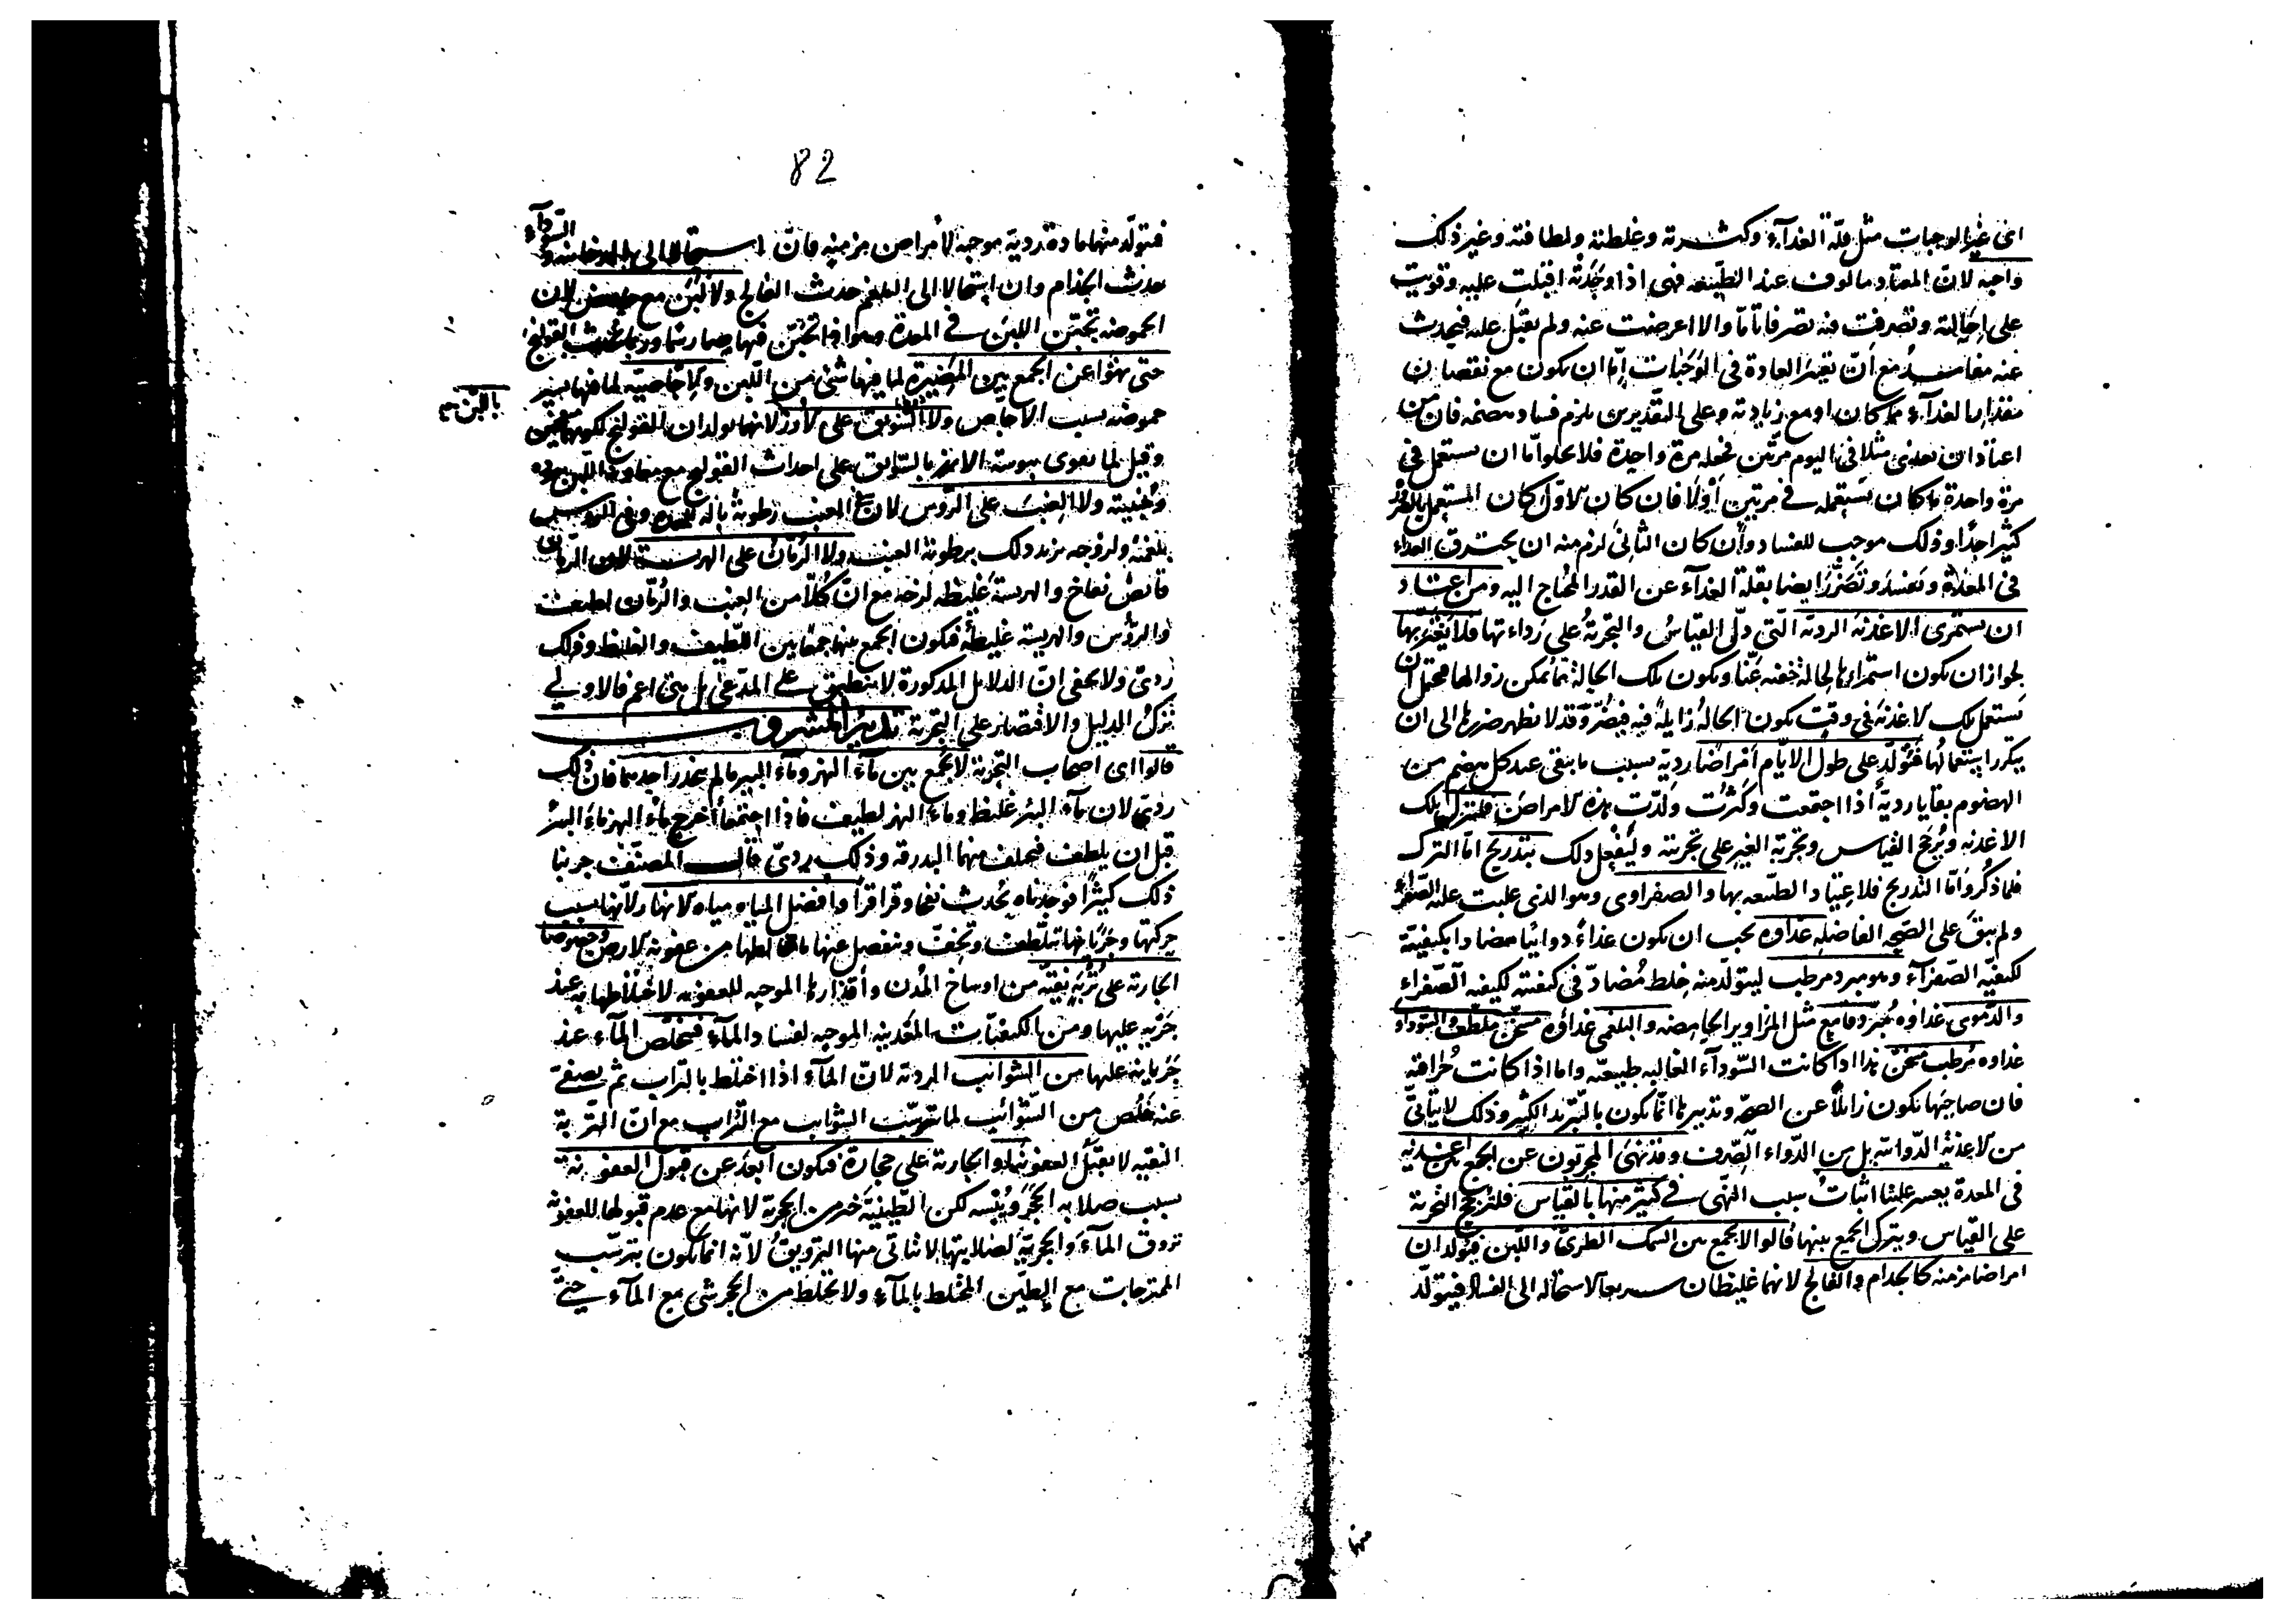 اى غير الوجبات مثل قلة الغذآء وكثرته وغلظته ولطافته وغير ذلك
واجبه لانّ المعتاد مالوف عند الطّبيعه فهى اذا وجدته اقبلت عليه وقويت
على احالته وتصرفت فيه تصرفا تامّا والا اعرضت عنه ولم تقبل عليه فيحدث
عنه مفاسد مع أنّ تغير العادة فى الوجبات إمّا ان يكون مع نقصان
مقدار الغذآء عما كان او مع زيادته وعلى التقديرين يلزم فساد هضمه فان من
اعتاد ان يغتذى مثلا فى اليوم مرّتين فجعله مرة واحدة فلا يخلو امّا ان يستعمل فى
مرة واحدة ما كان يستعمله فى مرتين أوْلا فان كان الاوّل كان المستعمل بالمرّة
كثيرا جدّا وذلك موجب للفساد وأن كان الثانى لزم منه ان يحترق الغذاء
فى المعدة ويفسد وتضرّر ايضا بقلة الغذآء عن القدر المحتاج اليه ومن اعتاد
ان يستمرى الاغذية الردية الّتى دلّ القياسُ والتجربةُ على رَداءتها فلا يغترّ بها
لجواز ان يكون استمراؤها لحالة خفية عنّا ويكون تلك الحالة مما يمكن زوالها فيحتمل ان
يستعمل تلك الاغذية فى وقت يكون الحالة زايلة فيه فيضرّ وقد لا يظهر ضررها الى ان
يتكرر استعمالها فتولّد على طول الايّام أمراضًا ردية بسبب ما يبقى عند كل هضم من
الهضوم بقايا رديةً اذا اجتمعت وكثرت ولّدت هذه الامراض فليترك تلك
الاغذية ويُرجّح القياس وتجربة الغير على تجربته وليُفعل ذلك بتدريج امّا الترك
فلما ذكروَامّا التدريج فلاعتياد الطّبيعه بها والصفراوى وهو الذى غلبت عليه الصّفراء
ولم يبقَ على الصّحه الفاضله غذاؤه يجب ان يكون غذاءً دوائيا مضادا بكيفيّته
لكيفيّة الصّفرآء وهو مبرد مرطب ليتولّد منه خلط مُضادّ فى كيفيته لكيفيه الصّفراء
والدّموى غذاؤه مُبرّد قامع مثل المزاوير الحامضه والبلغمى غذاؤه مسخّن ملطّف والسّوداوى
غذاوه مُرطب مسخّن هذا اذا كانت السّودآء الغالبه طبيعيّه واما اذا كانت حُراقيه
فان صاحبها يكون زايلا عن الصحّه وتدبيرها انّما يكون بالتّبريد الكثير وذلك لا يتأتىّ
من الاغذية الدّوائيّه بل من الدّواء الصّرف وقد نهى المجرّبون عن الجمع بين اغذية
فى المعدة يعسر علينا اثباتُ سبب النّهى فى كثير منها بالقياس فلنرجّح التجربة
على القياس ويترك الجمع بينها قالوا لا يجمع بين السمك الطرىّ واللّبن فيولدان
امراضا مزمنه كالجذام والفالج لانهما غليظان سريعا الاستحاله الى الفساد فيتولّد
منها
82
فتولّد منهما مادة ردية موجبة لأمراض مزمنه فانّ استحالا الى السّودآء
يحدث الجذام وان استحالا الى البلغم حدث الفالج ولا لبن مع حامض لان
الحموضه تجبّن اللبن فى المعدة وهو اذا تجبّن فيها صار سمّا وربما يحدث القولنج
حتى نهوا عن الجمع بين المضيرة لما فيها شىء من اللّبن والاجّاصيّه لما فيها يسير
حموضه بسبب الاجاص ولا السّويق على الأرز لانهما يولدان القولنج
باللبن
وقيل لما يقوى يبوسة الارز بالسّويق على احداث القولنج
ولا العنبَ على الرّؤس لان فى العنب رطوبةً
بلغميّه ولزوجه يزيد ذلك برطوبة العنب ولا الرّمّان على الهريسة لان الرّمان
قابض نفاخ والهريسة غليظه لزجه مع انّ كُلّا من العنب والرّمّان لطيف
والرّؤس والهريسة غليظه فيكون الجمع بينها جمعًا بين اللّطيف والغليظ وذلك
ردىّ ولا يخفى انّ الدلايل المذكورة لا تنطبق على المدّعى بل هى اعم فالاولى
تركُ الدليل والاقتصار على التجربة تدبيرُ المشروب
قالوا اى اصحاب التجربة لا يجمع بين مآء النهر ومآء البير مالم ينحدر احدهما فان ذلك
ردىّ لان مآء البئر غليظ وماء النهر لطيف فاذا اجتمعا أخرج ماءُ النهر ماءَ البئر
قبل ان يلطف فيخلف منهما البدرقة وذلك ردىّ قال المصنّف جربنا
ذلك كثيرًا فوجدناه يُحدث نفخا وقراقرًا وافضل المياه مياه الانهار لأنها بسبب
حركتها وجريانها تتلطف وتخفّ وينفصل عنها ما خالطها من عفونة الارض وخصوصا
الجارية على تُربة نقيّة من اوساخ المُدن وأقذارها الموجبه للعفونه لاختلاطها به عند
جَريه عليها ومن الكيفيّات المعدنية الموجبه لفساد المآء فيخلص المآء عند
جَريانه عليها من الشوائب الردية لانّ المآء اذا اختلط بالتراب ثم يصفى
عنه خلُص من الشّوائب لما ترسّب الشوائب مع التُراب مع انّ التّربة
النقيه لا تقبل العفونة او الجارية على حجارة فيكون ابعد عن قبول العفونة
بسبب صلابه الحَجَر ويُبسه لكن الطّينيّة خير من الحجريّة لانها مع عدم قبولها للعفونة
تروق المآءَ والحجريّة لصلابتها لا يتاتى منها الترويقُ لأنّه انما يكون بترسّب
الممتزجات مع الطّين المختلط بالمآء ولا يختلط من الحجر شىء مع المآء حتّى